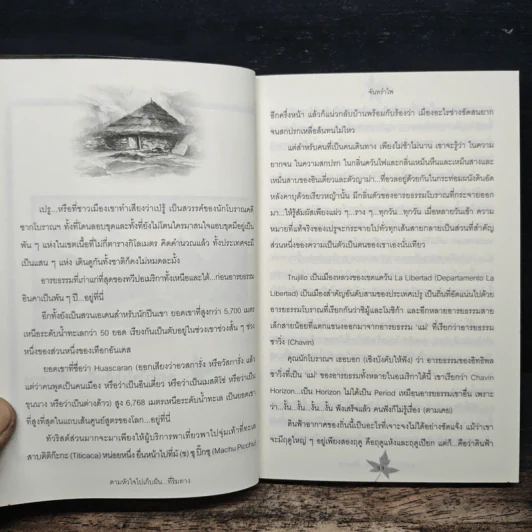 เปรู...หรือที่ชาวเมืองเขาทำเสียงว่าเปรู้ เป็นสวรรค์ของนักโบราณคดี
ซากโบราณ ทั้งที่โดนลอบขุดและทั้งที่ยังไม่โดนใครมาสนใจแอบขุดมีอยู่เป็น
พัน ๆ แห่งในเขตเนื้อที่ไม่กี่ตารางกิโลเมตร คิดคำนวณแล้ว ทั้งประเทศจะมี
เป็นแสน ๆ แห่ง เดินดูกันทั้งชาติก็คงไม่หมดละมั้ง
อารยธรรมที่เก่าแก่ที่สุดของทวีปอเมริกาทั้งเหนือและใต้...ก่อนอารยธรรม
อินคาเป็นพัน ๆ ปี...อยู่ที่นี่
อีกทั้งยังเป็นสวนเอเดนสำหรับนักปีนเขา ยอดเขาที่สูงกว่า 5,700 เมตร
เหนือระดับน้ำทะเลกว่า 50 ยอด เรียงกันเป็นตับอยู่ในช่วงเขาช่วงสั้น ๆ ช่วง
หนึ่งของส่วนหนึ่งของเทือกอันเดส
ยอดเขาที่ชื่อว่า Huascaran (ออกเสียงว่าอวสการั่ง หรือวัสการั่ง แล้ว
แต่ว่าคนพูดเป็นคนเมือง หรือว่าเป็นอินเดียว หรือว่าเป็นเมสติโซ่ หรือว่าเป็น
ขุนนาง หรือว่าเป็นต่างด้าว) สูง 6,768 เมตรเหนือระดับน้ำทะเล เป็นยอดเขา
ที่สูงที่สุดในแถบเส้นศูนย์สูตรของโลก...อยู่ที่นี่
ทัวริสต์ส่วนมากจะมาเพียงให้ผู้บริการพาเที่ยวพาไปจุ่มเท้าที่ทะเล
สาบติติก๊ะกะ (Titicaca) หน่อยหนึ่ง ยื่นหน้าไปที่มั (ช) ชุ ปิ๊กชุ (Machu Picchu)
ตามหัวใจไปเก็บฝัน...ที่ริมทาง
จันทรำไพ
อีกครึ่งหน้า แล้วก็แน่วกลับบ้านพร้อมกับร้องว่า เมืองอะไรช่างขัดสนยาก
จนสกปรกเหลือล้นทนไม่ไหว
แต่สำหรับคนที่เป็นคนเดินทาง เพียงไม่ช้าไม่นาน เขาจะรู้ว่า ในความ
ยากจน ในความสกปรก ในกลิ่นควันไฟและกลิ่นเหม็นหืนและเหม็นสางและ
เหม็นสาบของอินเดียวและตัวญาม่า...ที่อวลอยู่ด้วยกันในกระท่อมผนังดินอัด
หลังคามุงด้วยเรียวหญ้านั้น มีกลิ่นตัวของอารยธรรมโบราณที่กระจายออก
มา...ให้รู้สัมผัสเพียงแผ่ว ๆ...ราง ๆ...ทุกวัน...ทุกวัน เมื่อหลายวันเข้า ความ
หมายที่แท้จริงของเปรูจะกระจายไปทั่วทุกเส้นสายกลายเป็นส่วนที่สำคัญ
ส่วนหนึ่งของความเป็นตัวเป็นตนของเขาเองนั้นเทียว
Trujillo เป็นเมืองหลวงของเขตแคว้น La Libertad (Departamento La
Libertad) เป็นเมืองสำคัญอันดับสามของประเทศเปรู เป็นถิ่นที่อัดแน่นไปด้วย
อารยธรรมโบราณที่เรียกกันว่าชิมู้และโมชิก้า และอีกหลายอารยธรรมสาย
เล็กสายน้อยที่แตกแขนงออกมาจากอารยธรรม 'แม่' ที่เรียกว่าอารยธรรม
ชาวิ่ง (Chavin)
คุณนักโบราณฯ เธอบอก (เชิงบังคับให้ฟัง) ว่า อารยธรรมของอิทธิพล
ชาวิ่งที่เป็น 'แม่' ของอารยธรรมทั้งหลายในอเมริกาใต้นี้ เขาเรียกว่า Chavin
Horizon...เป็น Horizon ไม่ได้เป็น Period เหมือนอารยธรรมเขาอื่น เพราะ
ว่า...งั้น...งั้น...งั้น...งั้น ฟังเสร็จแล้ว คนฟังก็ไม่รู้เรื่อง (ตามเคย)
ดินฟ้าอากาศของถิ่นนี้เป็นอะไรที่เขาจะจงไม่ได้อย่างชัดแจ้ง แม้ว่าเขา
จะมีฤดูใหญ่ ๆ อยู่เพียงสองฤดู คือฤดูแห้งและฤดูเปียก แต่ก็...คือว่าดินฟ้า